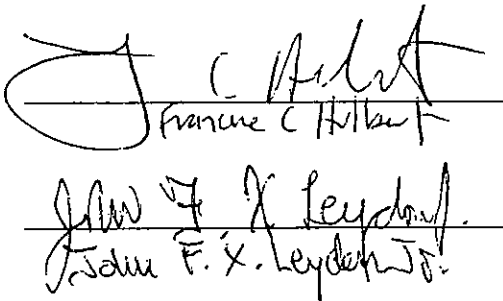 F C Hulbert
Francine C Hulbert
John F X Leyden Jr.
John F. X. Leyden Jr.